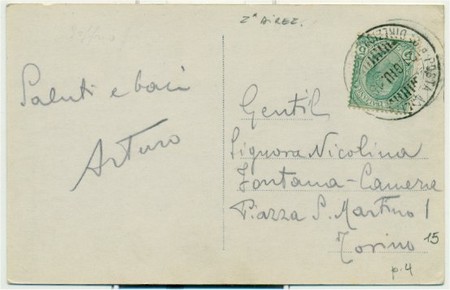 Saluti e baci
Arturo
Gentil
Signora Nicolina
Fontana-Camera
Piazza S. Martino 1
Torino 15
p. 4